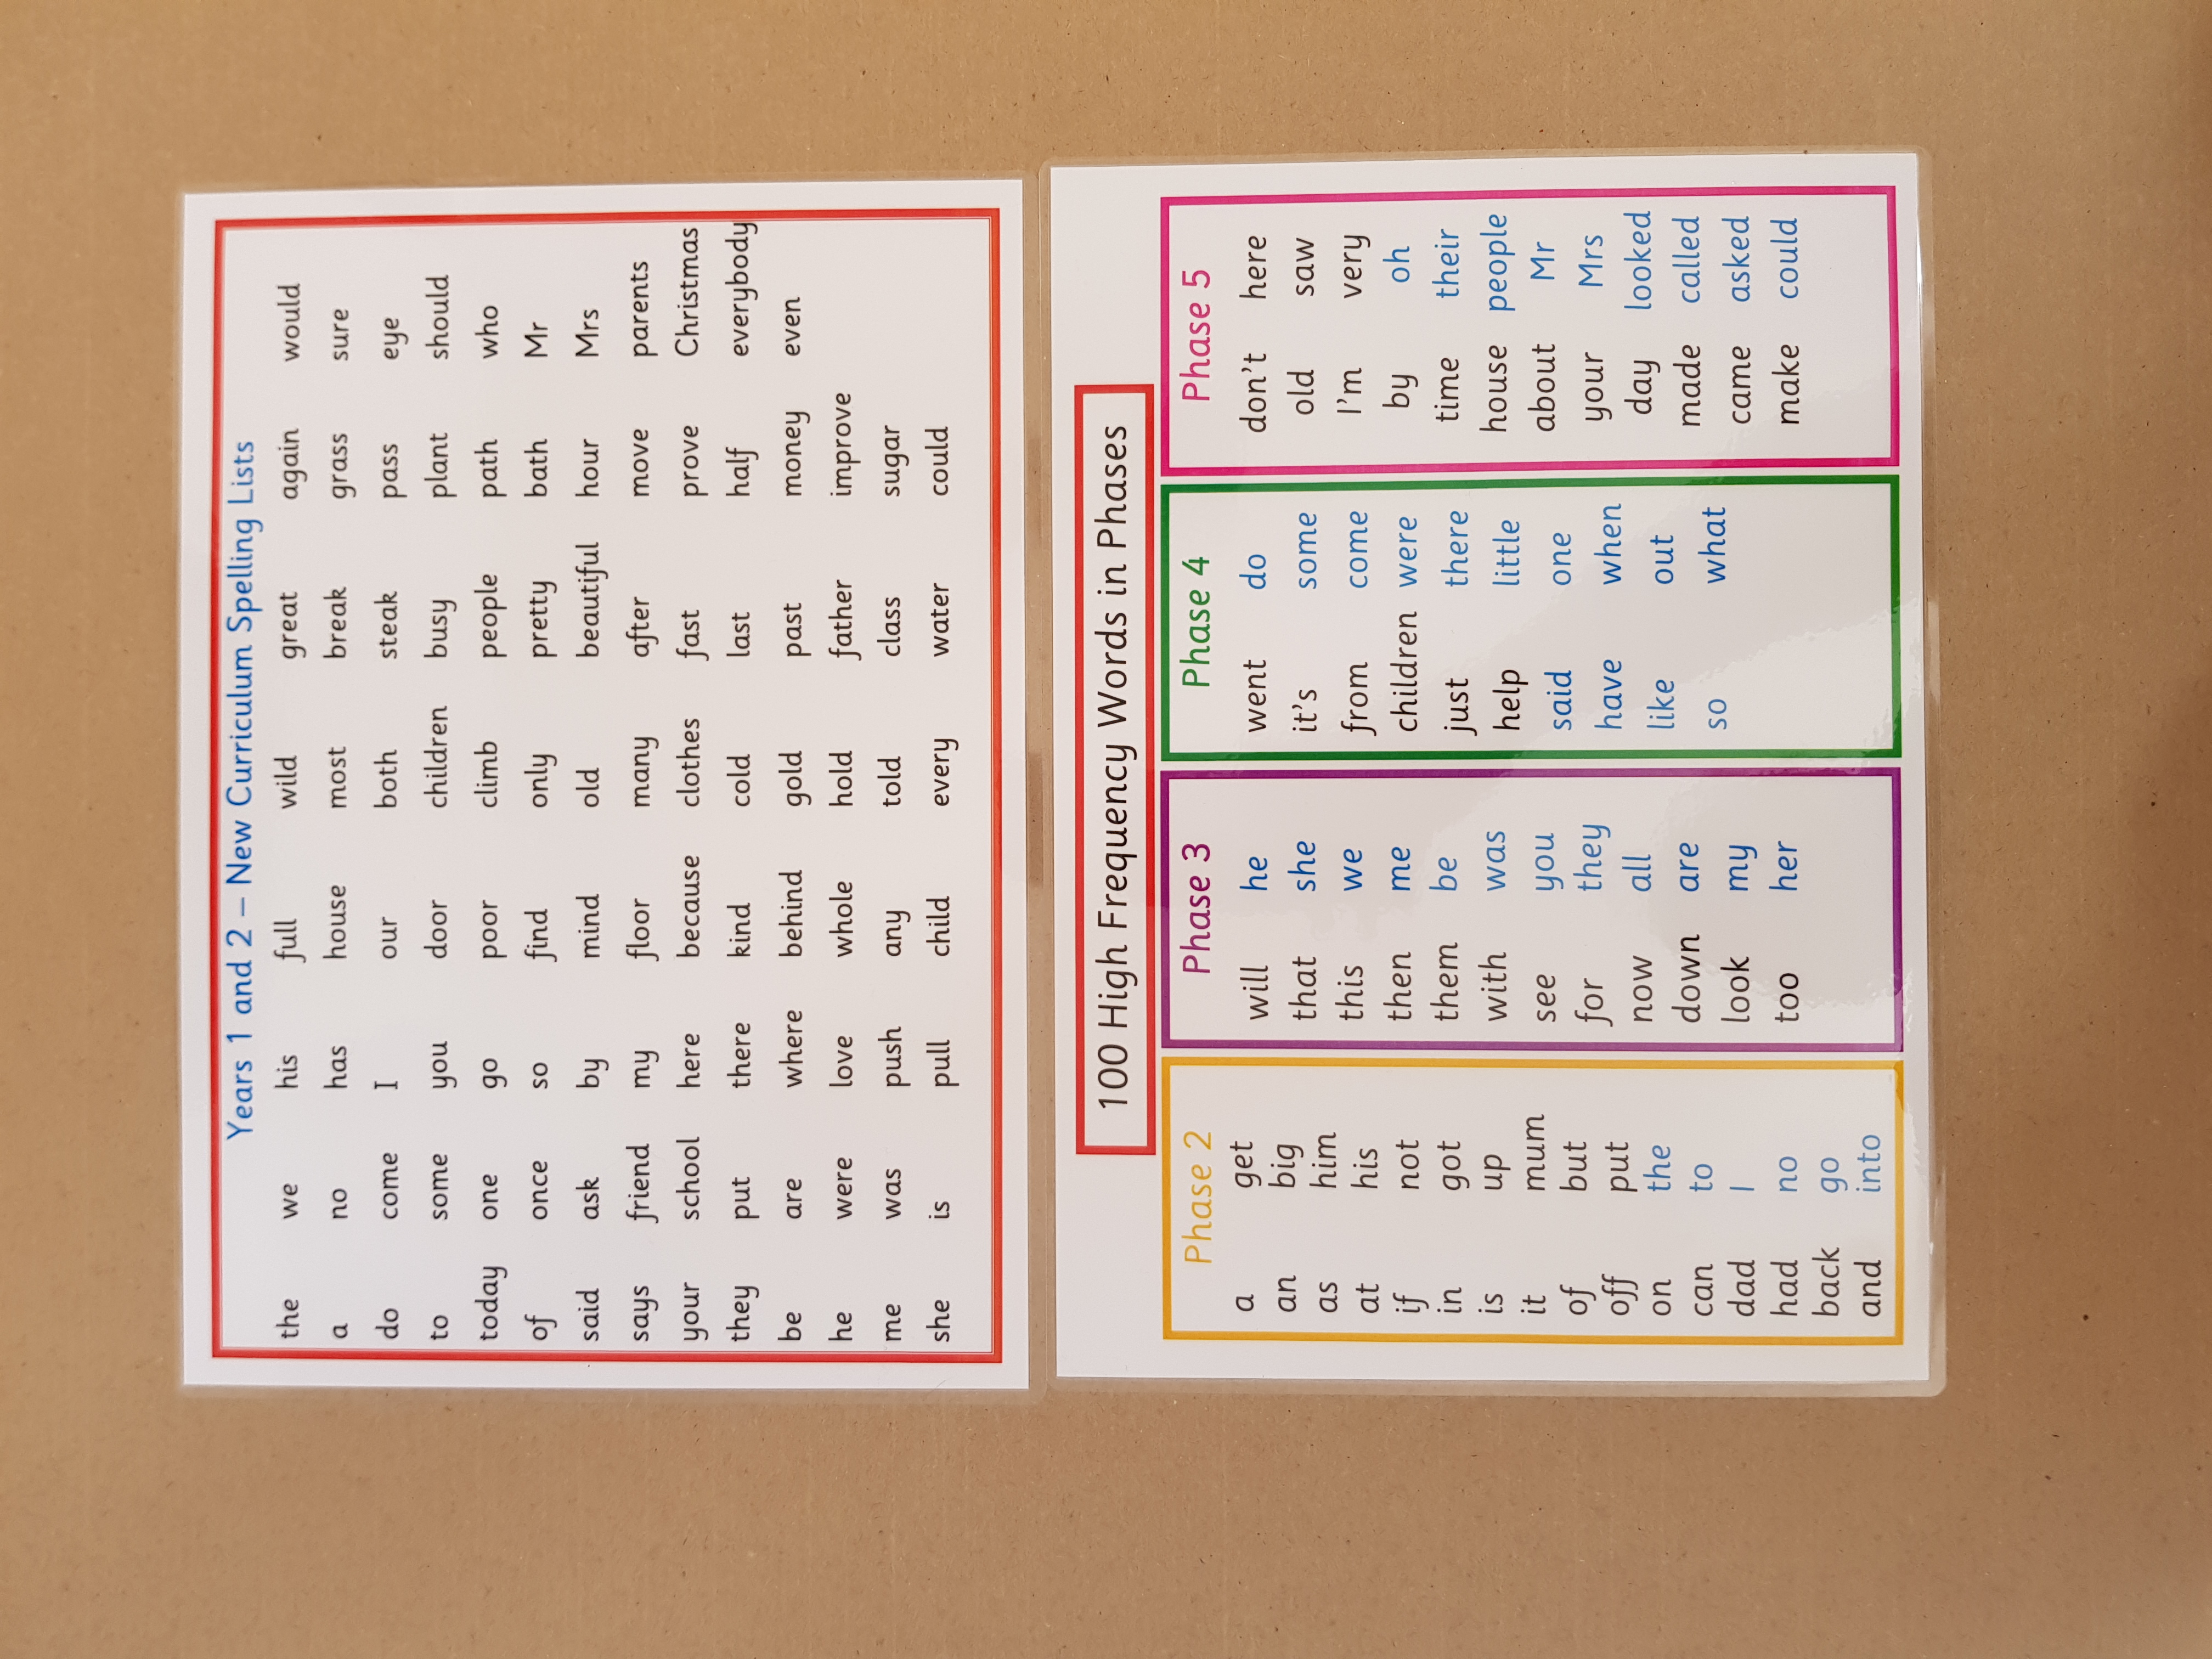 Years 1 and 2 – New Curriculum Spelling Lists
the we his full wild great again would
a no has house most break grass sure
do come I our both steak pass eye
to some you door children busy plant should
today one go poor climb people path who
of once so find only pretty bath Mr
said ask by mind old beautiful hour Mrs
says friend my floor many after move parents
your school here because clothes fast prove Christmas
they put there kind cold last half everybody
be are where behind gold past money even
he were love whole hold father improve
me was push any told class sugar
she is pull child every water could
100 High Frequency Words in Phases
Phase 2
a get
an big
as him
at his
if not
in got
is up
it mum
of but
off put
on the
can to
dad I
had no
back go
and into
Phase 3
will he
that she
this we
then me
them be
with was
see you
for they
now all
down are
look my
too her
Phase 4
went do
it's some
from come
children were
just there
help little
said one
have when
like out
so what
Phase 5
don't here
old saw
I'm very
by oh
time their
house people
about Mr
your Mrs
day looked
made called
came asked
make could